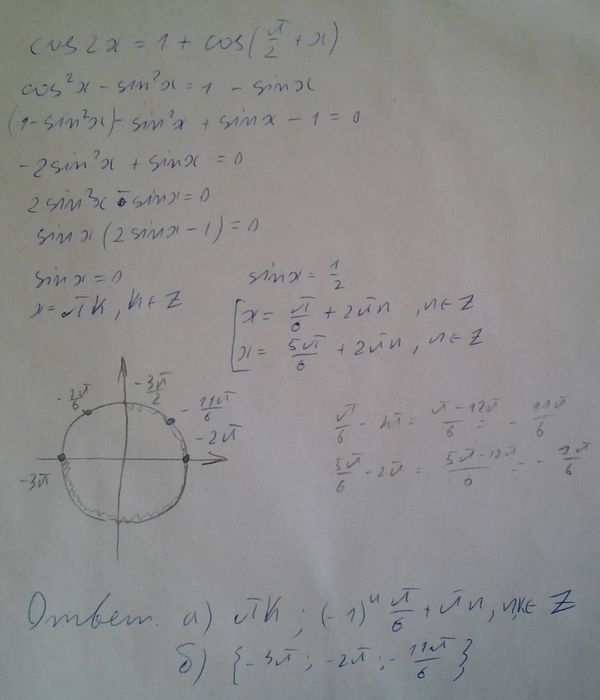 cos2x = 1 + cos(π/2 + x)
cos²x - sin²x = 1 - sinx
(1-sin²x) - sin²x + sinx - 1 = 0
-2sin²x + sinx = 0
2sin²x - sinx = 0
sinx(2sinx - 1) = 0
sinx = 0
x = πk, k ∈ Z
sinx = 1/2
[ x = π/6 + 2πn, n ∈ Z
x = 5π/6 + 2πn, n ∈ Z
-7π/6
-3π/2
-11π/6
-2π
-3π
π/6 - 2π = π-12π/6 = -11π/6
5π/6 - 2π = 5π-12π/6 = -7π/6
Ответ: а) πk ; (-1)ⁿ π/6 + πn, n,k ∈ Z
б) {-3π ; -2π ; -11π/6}